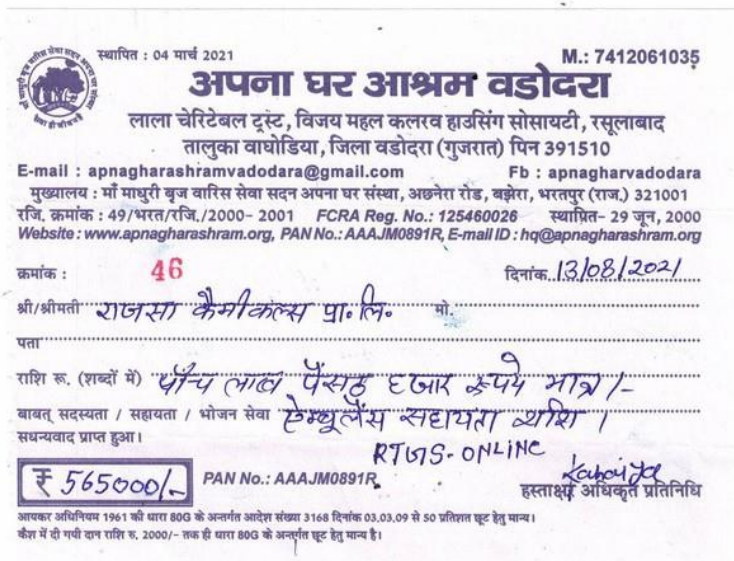 स्थापित : 04 मार्च 2021 M.: 7412061035
अपना घर आश्रम वडोदरा
लाला चेरिटेबल ट्रस्ट, विजय महल कलरव हाउसिंग सोसायटी, रसूलाबाद
तालुका वाघोडिया, जिला वडोदरा (गुजरात) पिन 391510
E-mail : apnagharashramvadodara@gmail.com Fb : apnagharvadodara
मुख्यालय : माँ माधुरी बृज वारिस सेवा सदन अपना घर संस्था, अछनेरा रोड, बझेरा, भरतपुर (राज.) 321001
रजि. क्रमांक : 49/भरत/रजि./2000- 2001 FCRA Reg. No.: 125460026 स्थापित- 29 जून, 2000
Website : www.apnagharashram.org, PAN No.: AAAJM0891R, E-mail ID : hq@apnagharashram.org
क्रमांक : 46 दिनांक 13/08/2021
श्री/श्रीमती राजसा कैमीकल्स प्रा. लि. मो.
पता
राशि रू. (शब्दों में) पाँच लाख पैंसठ हजार रूपये मात्र/-
बाबत् सदस्यता / सहायता / भोजन सेवा ऐम्बूलैंस सहायता राशि ।
सधन्यवाद प्राप्त हुआ।
RTGS-ONLINE
₹ 565000/- PAN No.: AAAJM0891R
हस्ताक्षर अधिकृत प्रतिनिधि
आयकर अधिनियम 1961 की धारा 80G के अन्तर्गत आदेश संख्या 3168 दिनांक 03.03.09 से 50 प्रतिशत छूट हेतु मान्य।
कैश में दी गयी दान राशि रु. 2000/- तक ही धारा 80G के अन्तर्गत छूट हेतु मान्य है।